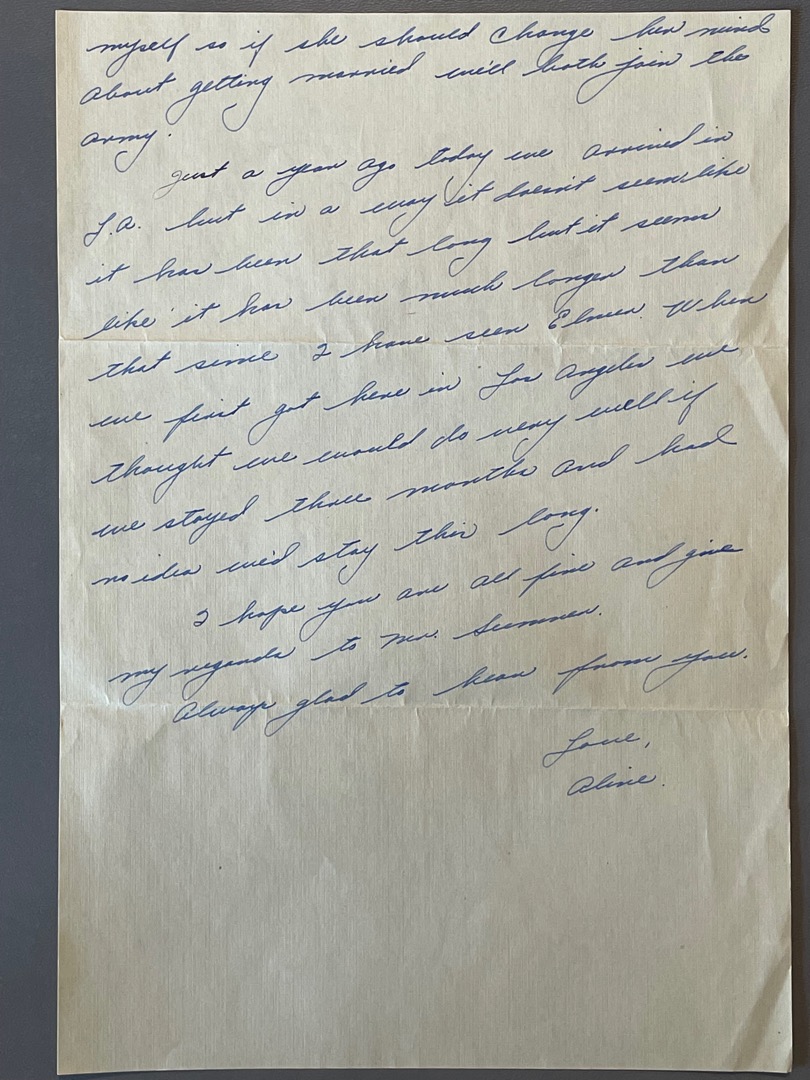 myself so if she should change her mind
about getting married we'll both join the
army.
Just a year ago today we arrived in
L.A. but in a way it doesn't seem like
it has been that long but it seems
like it has been much longer than
that since I have seen Elmer. When
we first got here in Los Angeles we
thought we would do very well if
we stayed three months and had
no idea we'd stay this long.
I hope you are all fine and give
my regards to Mr. Sumner.
Always glad to hear from you.
Love,
Aline.